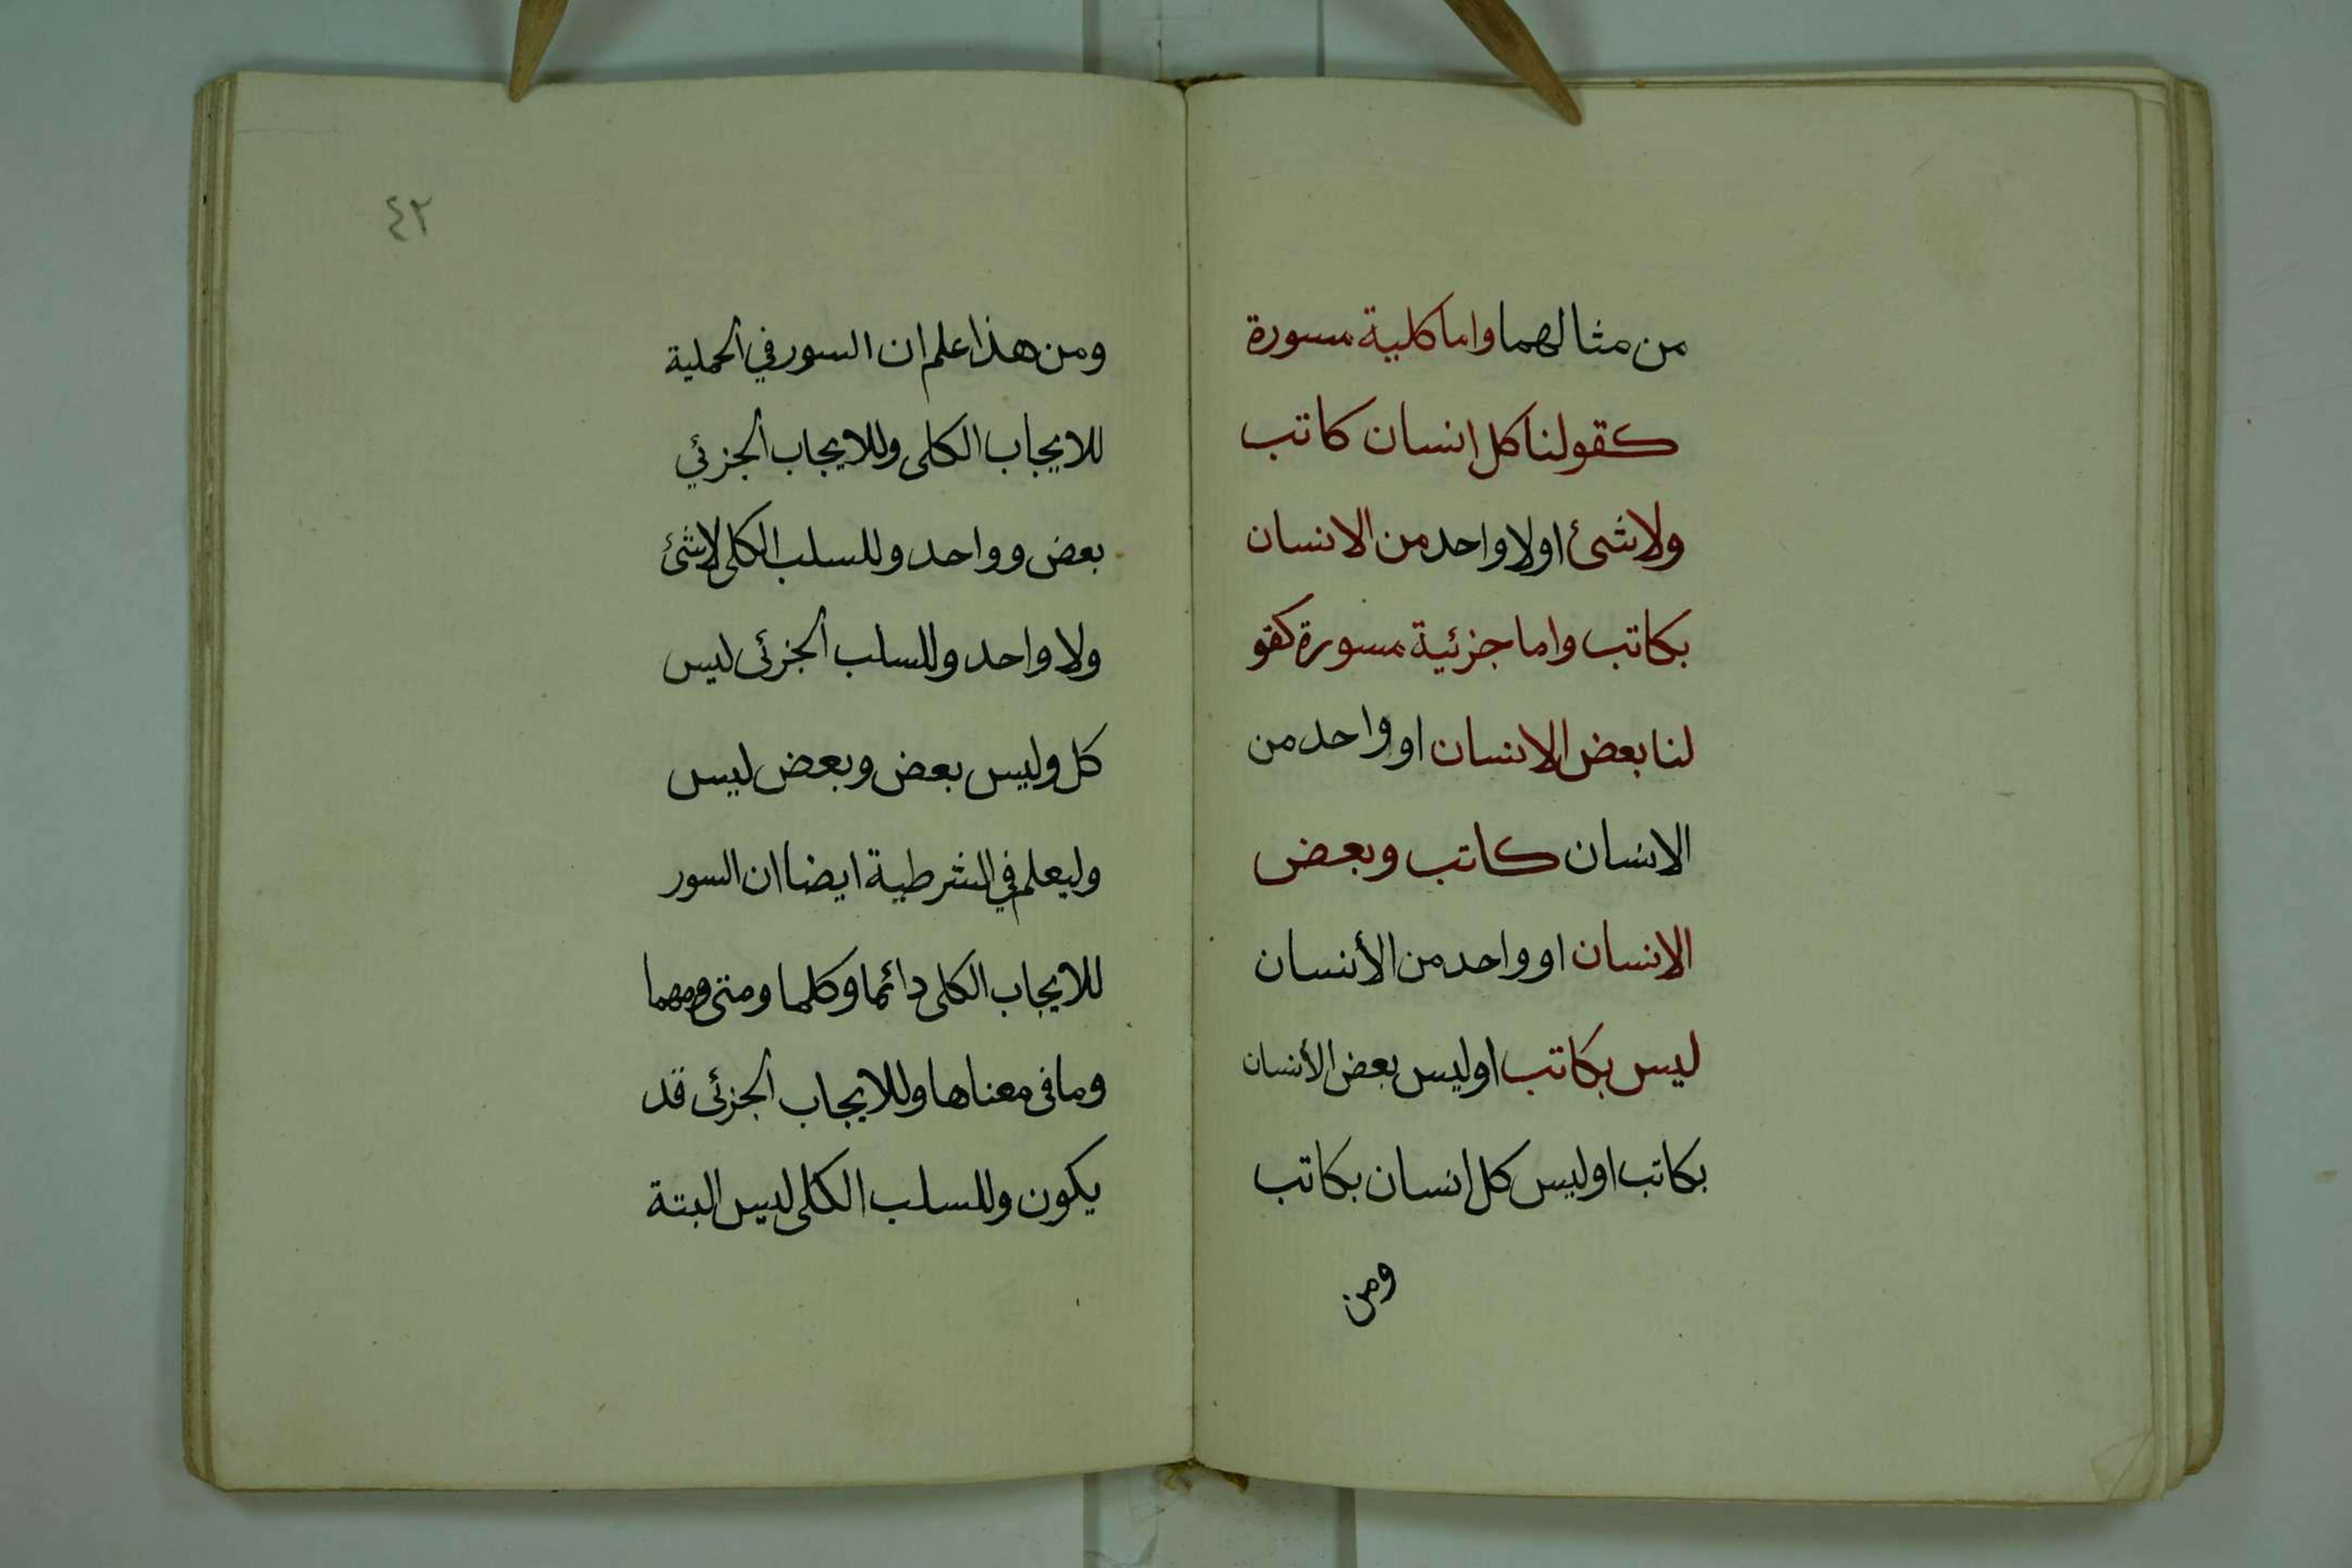 من مثالهما واما كلية مسورة
كقولنا كل انسان كاتب
ولاشئ اولا واحد من الانسان
بكاتب واما جزئية مسورة كقو
لنا بعض الانسان او واحد من
الانسان كاتب وبعض
الانسان او واحد من الأنسان
ليس بكاتب اوليس بعض الأنسان
بكاتب اوليس كل انسان بكاتب
ومن
٤٢
ومن هذا علم ان السور في الحملية
للايجاب الكلى وللايجاب الجزئي
بعض وواحد وللسلب الكلى لاشئ
ولا واحد وللسلب الجزئى ليس
كل وليس بعض وبعض ليس
وليعلم في الشرطية ايضا ان السور
للايجاب الكلى دائما وكلما ومتى ومهما
وما فى معناها وللايجاب الجزئى قد
يكون وللسلب الكلى ليس البتة